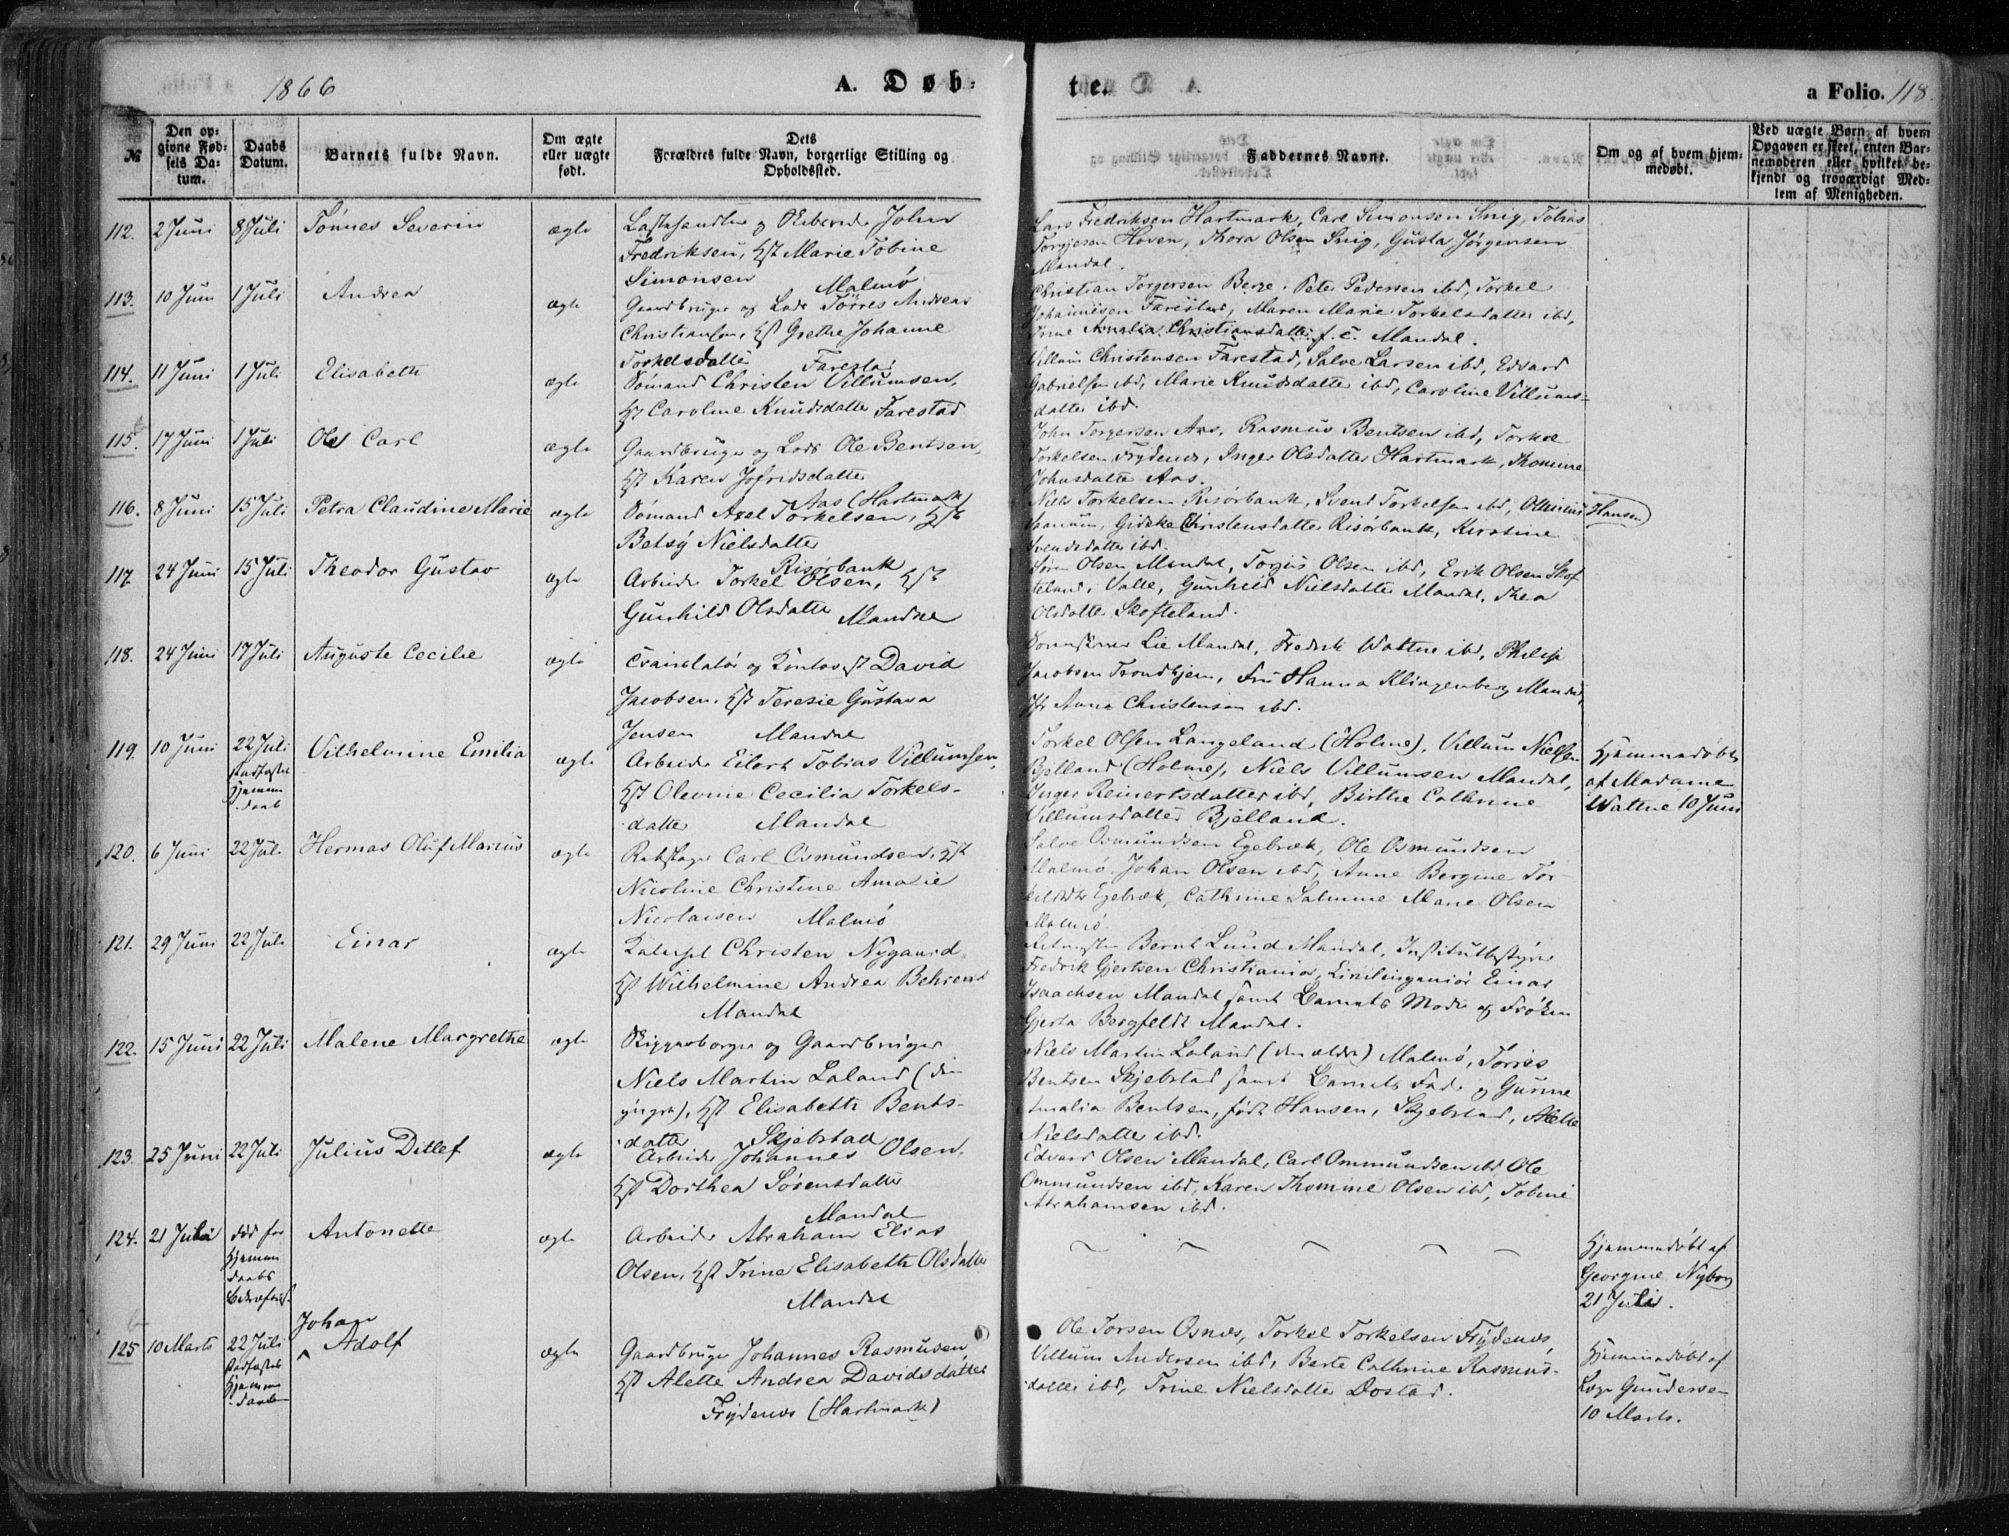 1866
A. Døb=
te.
a Folio. 118.
№
Den op=
givne Fød=
sels Da=
tum.
Daabs
Datum.
Barnets fulde Navn.
Om ægte
eller uægte
født.
Dets
Forældres fulde Navn, borgerlige Stilling og
Opholdssted.
Faddernes Navne.
Om og af hvem hjem=
medøbt.
Ved uægte Børn af hvem
Opgaven er skeet, enten Bar=
nemoderen eller hvilket be=
kjendt og troværdigt Med=
lem af Menigheden.
112. 2 Juni 8 Juli Tønnes Severin ægte
og John
Fredriksen, Hst Marie Tobine
Simonsen Malmø
Lars Fredriksen Hartmark, Carl Simonsen Snig, Tobias
Torgjesen Hoven, Thora Olsen Snig, Gusta Jørgensen
Mandal.
113. 10 Juni 1 Juli Andrea ægte
Gaardbruger og Lods Tørres Andreas
Christiansen, Hst Grethe Johanne
Torkelsdatter Farestad
Christian Torgersen Berge, Peter Pedersen ibd, Torkel
Johannesen Farestad, Maren Marie Torkelsdatter ibd,
Trine Amalia Christiansdatter Mandal.
114. 11 Juni 1 Juli Elisabeth ægte
Sømand Christen Villumsen,
Hst Caroline Knudsdatter Farestad
Villum Christensen Farestad, Salve Larsen ibd, Edvard
Gabrielsen ibd, Marie Knudsdatter ibd, Caroline Villums-
datter ibd.
115. 17 Juni 1 Juli Ole Carl ægte
Gaardbruger og Lods Ole Bentsen,
Hst Karen Jofridsdatter
Aas (Hartmark)
John Torgersen Aas, Rasmus Bentsen ibd, Torkel
Torkelsen Frydenes, Inger Olsdatter Hartmark, Thomine
Johnsdatter Aas.
116. 8 Juni 15 Juli Petra Claudine Marie ægte
Sømand Axel Torkelsen, Hst
Betsy Nielsdatter
Risørbank
Niels Torkelsen Risørbank, Svend Torkelsen ibd, (Hansen)
Christensdatter Risørbank, Kirstine
Svendsdatter ibd.
117. 24 Juni 15 Juli Theodor Gustav ægte
Arbeider Torkel Olsen, Hst
Gunhild Olsdatter Mandal
Søren Olsen Mandal, Torjus Olsen ibd, Erik Olsen Skof
teland, Valle, Gunhild Nielsdatter Mandal, Thea
Olsdatter Skofteland.
118. 24 Juni 17 Juli Auguste Cecilie ægte
Translatør og David
Jacobsen, Hst Teresie Gustava
Jensen Mandal
Lie Mandal, Fredrik Wattne ibd, Philip
Jacobsen Trondhjem, Fru Hanna Klingenberg Mandal,
Anna Christensen ibd.
119. 10 Juni 22 Juli Vilhelmine Emilia ægte
Stadfæstet
Hjemme
daab
Arbeider Eilert Tobias Villumsen,
Hst Olevine Cecilia Torkels-
datter Mandal
Torkel Olsen Langeland (Holme), Villum Nielsen
Bjelland (Holme), Niels Villumsen Mandal,
Inger Reinertsdatter ibd, Birthe Cathrine
Villumsdatter Bjelland.
Hjemmedøbt
af Madame
Wattne 10 Juni
120. 6 Juni 22 Juli Hermas Oluf Marius ægte
Rebslager Carl Osmundsen, Hst
Nicoline Christine Amalie
Nicolaisen Malmø
Salve Osmundsen Egebæk, Ole Osmundsen
Malmø, Johan Olsen ibd, Anne Bergine Tor-
Egebæk, Cathrine Salmine Marie Olsen
Malmø.
121. 29 Juni 22 Juli Einar ægte
Christen Nygaard,
Hst Wilhelmine Andrea Behrens
Mandal
Bernt Lund Mandal, Institutbestyrer
Fredrik Gjertsen Christiania, Civilingeniør Einar
Isaachsen Mandal samt Barnets Moder og Frøken
Gjerta Bergfeldt Mandal.
122. 15 Juni 22 Juli Malene Margrethe ægte
Skipper og Gaardbruger
Niels Martin Laland (den
yngre), Hst Elisabeth Bents-
datter Skjebstad
Niels Martin Laland (den ældre) Malmø, Torris
Bentsen Skjebstad samt Barnets Fader og Gurine
Amalia Bentsen, født Hansen, Skjebstad, Alette
Nielsdatter ibd.
123. 25 Juni 22 Juli Julius Ditlef ægte
Arbeider Johannes Olsen,
Hst Dorthea Sørensdatter
Mandal
Edvard Olsen Mandal, Carl Ommundsen ibd, Ole
Ommundsen ibd, Karen Thomine Olsen ibd, Tobine
Abrahamsen ibd.
124. 21 Juli død før Antonette ægte
Hjemme
daabs
Bekræftelse
Arbeider Abraham Elias
Olsen, Hst Trine Elisabeth Olsdatter
Mandal
Hjemmedøbt af
Georgine Nyborg
21 Juli.
125 10 Marts 22 Juli Johan Adolf ægte
Stadfæstet
Hjemme
daab
Gaardbruger Johannes Rasmusen,
Hst Alette Andrea Davidsdatter
Frydenes (Hartmark)
Ole Torsen Osnes, Torkel Torkelsen Frydenes,
Villum Andersen ibd, Berte Cathrine Rasmus-
datter ibd, Trine Nielsdatter Dostad.
Hjemmedøbt af
Gundersen
10 Marts.